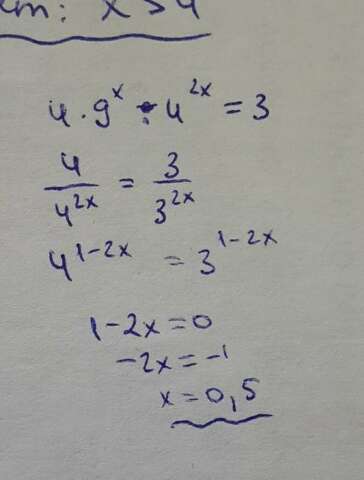 x > 4
4 · 9^x : 4^{2x} = 3
4/4^{2x} = 3/3^{2x}
4^{1-2x} = 3^{1-2x}
1-2x=0
-2x=-1
x=0,5